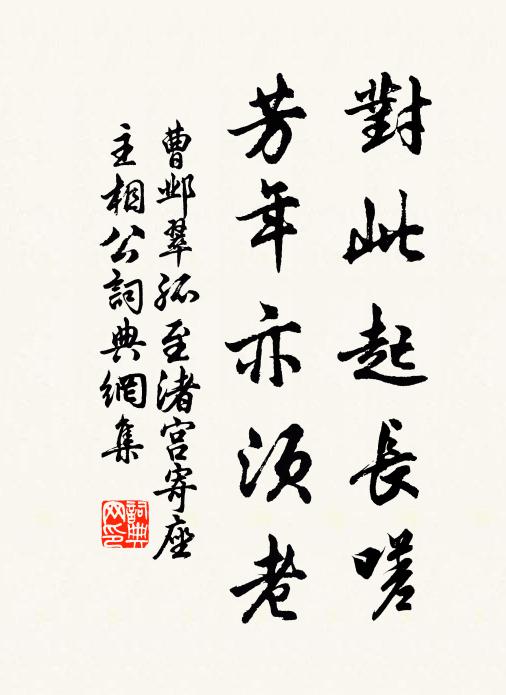 對此起長嗟
芳年亦須老
曹邺翠孤至渚宮寄座
主相公詞典網集
詞典网印